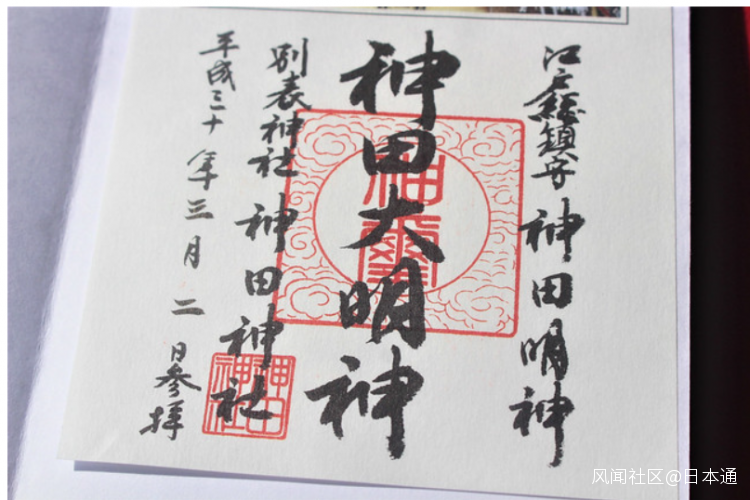 江戸総鎮守 神田明神
神田大明神
別表神社 神田神社
平成三十年三月二日参拝
神璽
神田神社
风闻社区@日本通